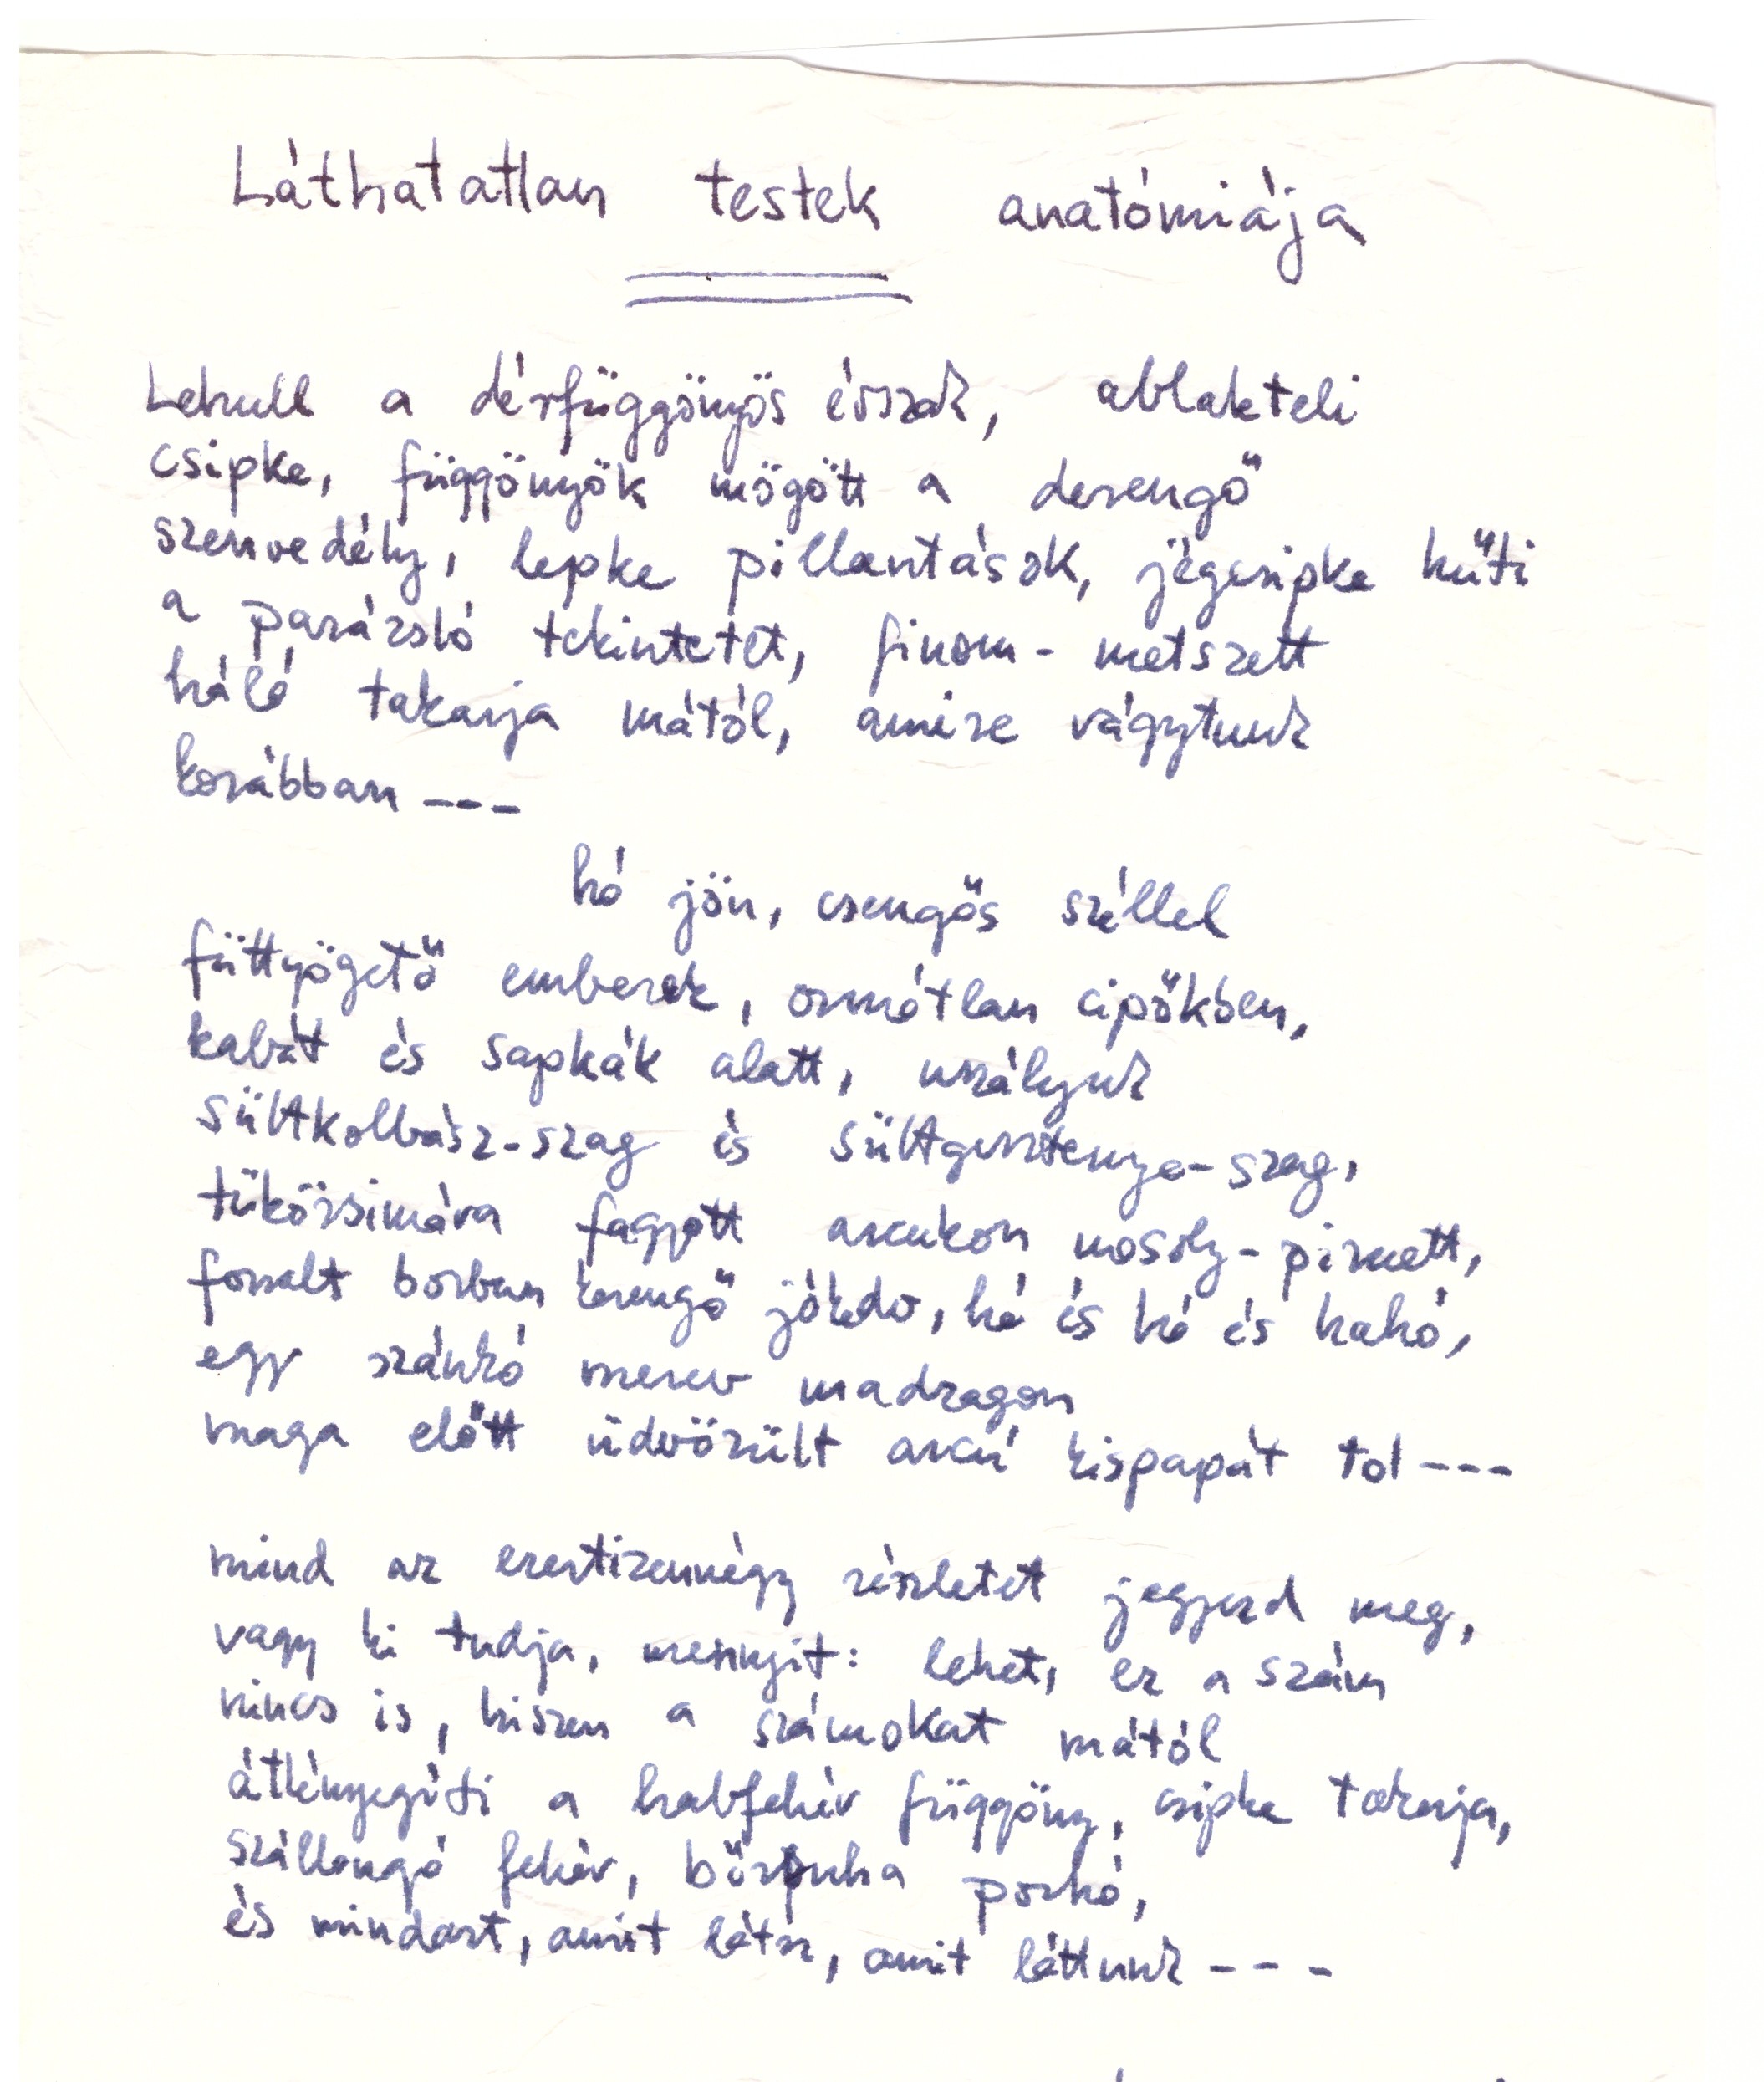 Láthatatlan testek anatómiája
Lehull a dérfüggönyös évszak, ablakteli
csipke, függönyök mögött a derengő
szenvedély, lepke pillantások, jégcsipke hűti
a parázsló tekintetet, finom- metszett
háló takarja mától, amire vágytunk
korábban ---
hó jön, csengős széllel
füttyögető emberek, ormótlan cipőkben,
kabát és sapkák alatt, uszályuk
sültkolbász-szag és sültgesztenye-szag,
tükörsimára fagyott arcukon mosoly-pirkett,
forralt borban kerengő jókedv, hó és hó és hahó,
egy szánkó merev madzagon
maga előtt üdvözült arcú kispapát tol ---
mind az ezertizennégy részletet jegyezd meg,
vagy ki tudja, mennyit: lehet, ez a szám
nincs is, hiszen a számokat mától
átlényegíti a habfehér függöny, csipke takarja,
szállongó fehér, bőrpuha porhó,
és mindazt, amit látsz, amit láttunk ---